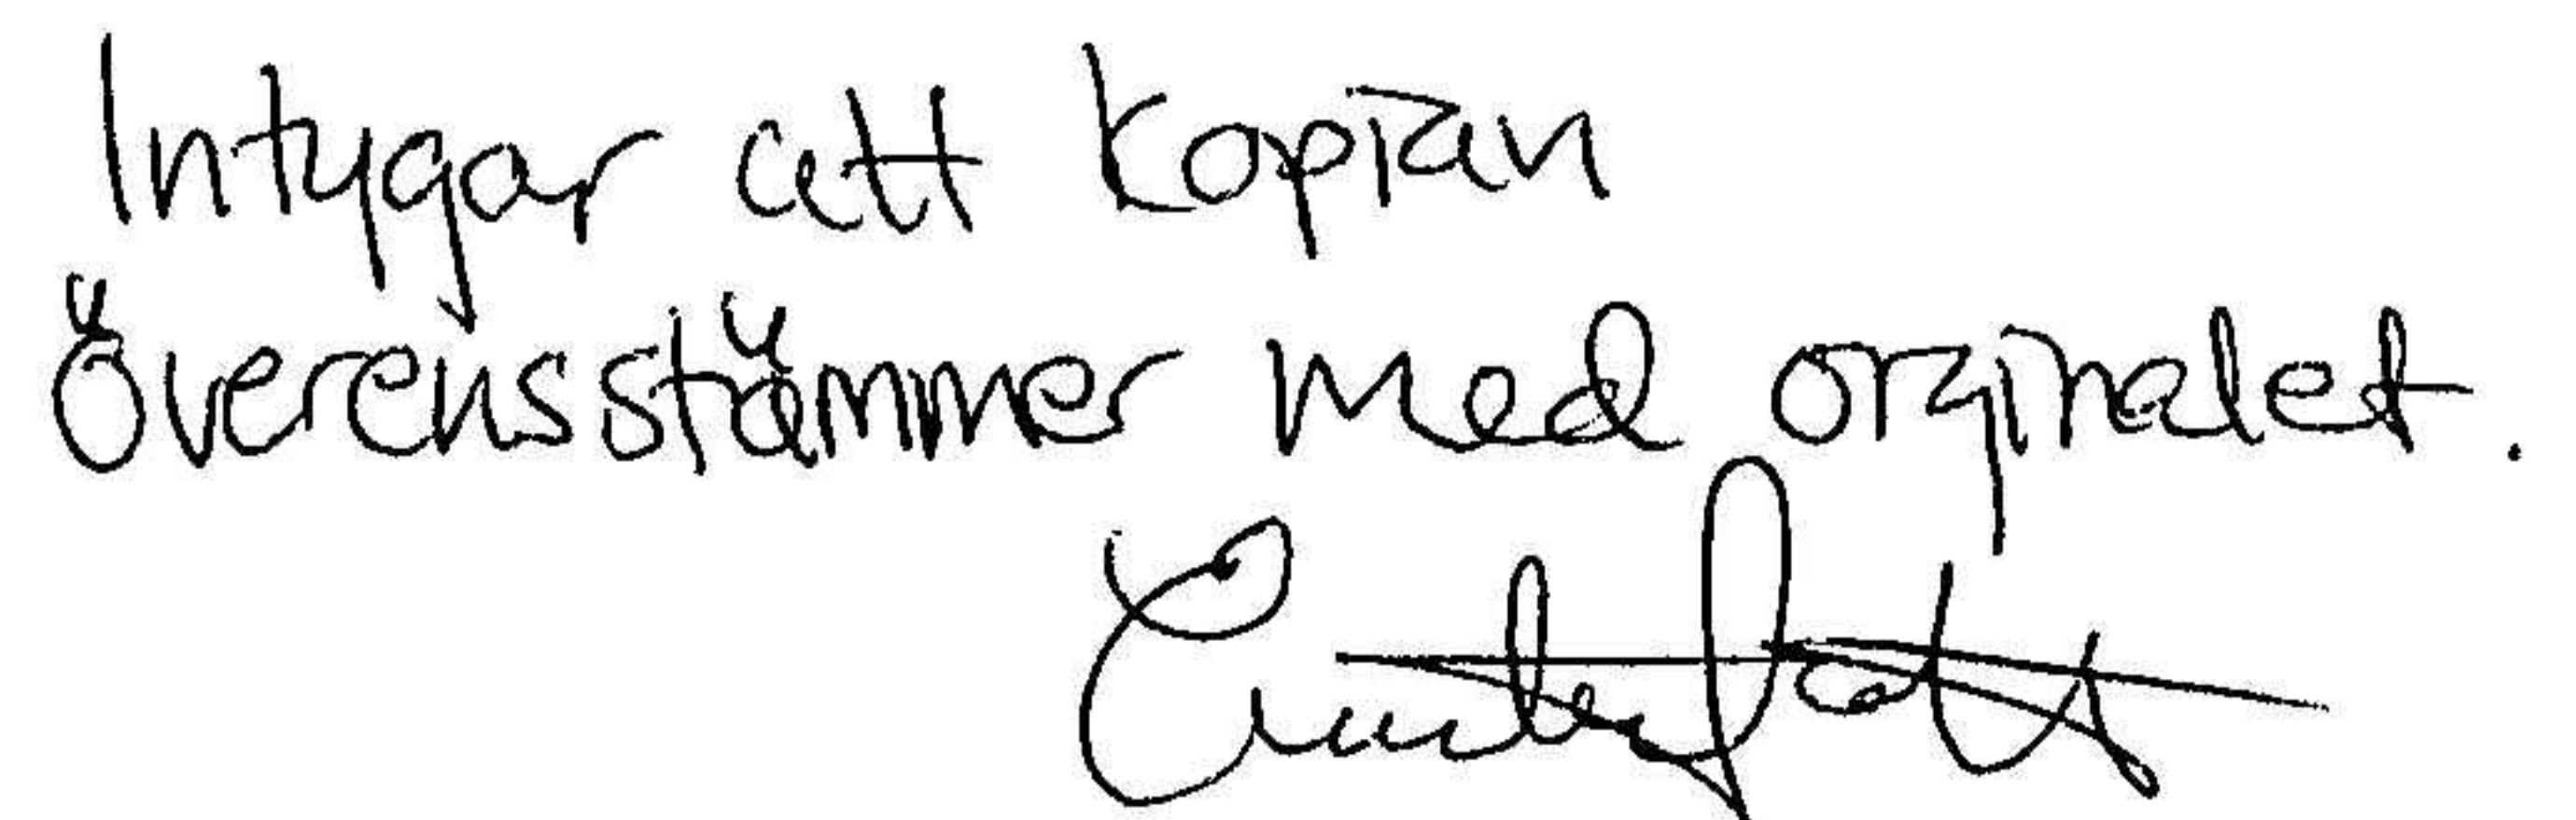 Intygar att kopian
överensstämmer med orginalet.